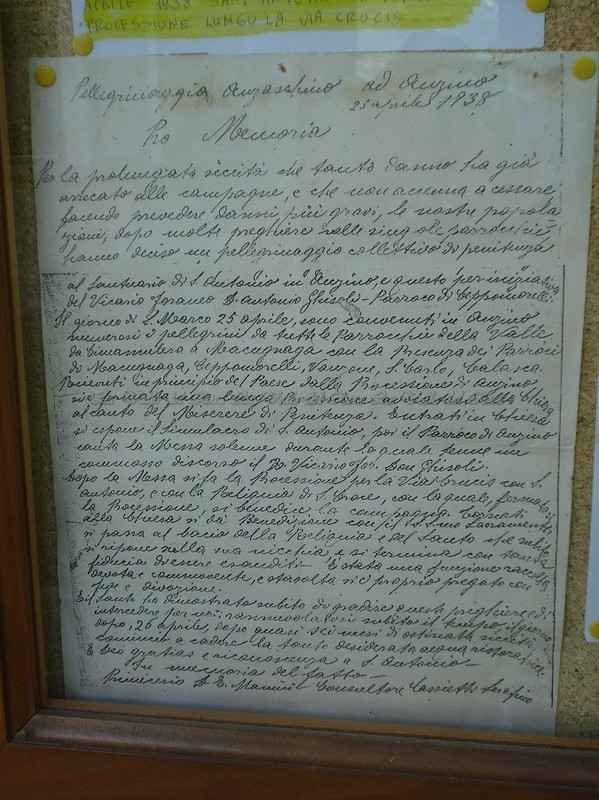 APRILE 1938 SANT'ANTONIO
PROCESSIONE LUNGO LA VIA CRUCIS - - -
Pellegrinaggio Anzaschino ad Anzino
25 aprile 1938
Pro Memoria
Per la prolungata siccità che tanto danno ha già
arrecato alle campagne, e che non accenna a cessare
facendo prevedere danni più gravi, le nostre popola
zioni, dopo molte preghiere nelle singole parrocchie
hanno deciso un pellegrinaggio collettivo di penitenza
al santuario di S. Antonio in Anzino, e questo per iniziativa
del Vicario foraneo D. Antonio Ghisoli - Parroco di Ceppomorelli.
Il giorno di S. Marco 25 aprile, sono convenuti in Anzino
numerosi i pellegrini da tutte le Parrocchie della Valle
da Cimamulera a Macugnaga con la Presenza dei Parroci
di Macugnaga, Ceppomorelli, Vanzone, S. Carlo, Calasca.
Ricevuti in principio del Paese dalla Processione di Anzino
si è formata una lunga Processione avviatasi alla Chiesa
al canto del Miserere di Penitenza. Entrati in Chiesa
si espone il simulacro di S. Antonio, poi il Parroco di Anzino
canta la Messa solenne durante la quale tenne un
commosso discorso il Vicario for. Don Ghisoli.
Dopo la Messa si fa la Processione per la Via Crucis con S.
Antonio, e con la Reliquia di S. Croce, con la quale,
la Processione, si benedice la campagna. Tornati
alla Chiesa si dà Benedizione con il S.S.mo Sacramento
si passa al bacio della Reliquia e del Santo che subito
si ripone nella sua nicchia, e si termina con tanta
fiducia di essere esauditi. È stata una funzione raccolta
devota e commovente, e stavolta si è proprio pregato con
fede e divozione.
E il Santo ha dimostrato subito di gradire queste preghiere e di
intercedere per noi: rannuvolatosi subito il tempo, il giorno
dopo, 26 aprile, dopo quasi sei mesi di ostinata siccità,
cominciò a cadere la tanto desiderata acqua ristoratrice.
E Deo gratias e riconoscenza a S. Antonio
In memoria del fatto -
Primicerio D. E. Manini Consultore Cassietti Serafino